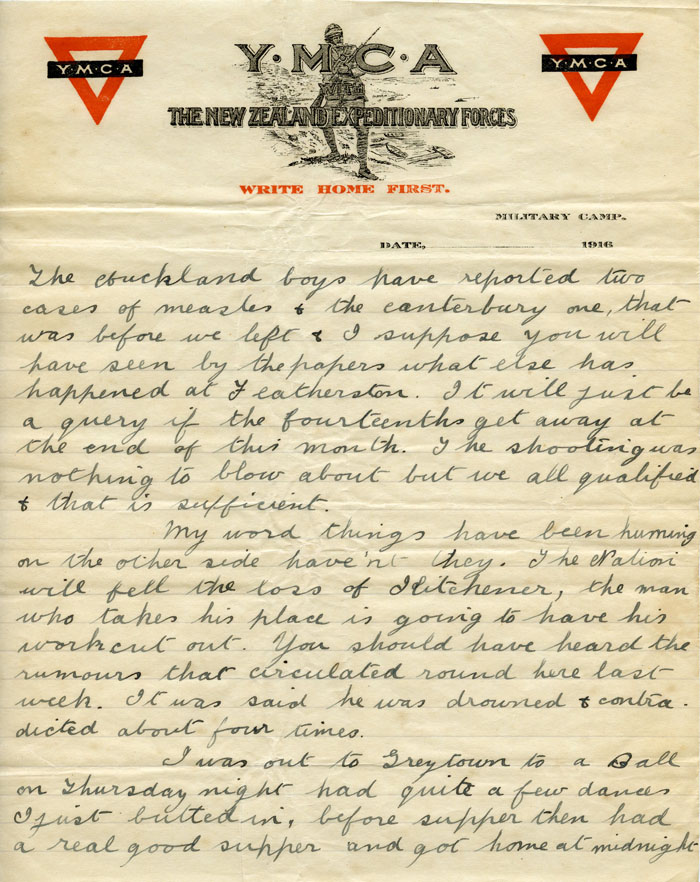 Y·M·C·A
Y·M·C·A
Y·M·C·A
WITH
THE NEW ZEALAND EXPEDITIONARY FORCES
WRITE HOME FIRST.
MILITARY CAMP.
DATE, 1916
The Auckland boys have reported two
cases of measles & the canterbury one, that
was before we left & I suppose you will
have seen by the papers what else has
happened at Featherston. It will just be
a query if the fourteenths get away at
the end of this month. The shooting was
nothing to blow about but we all qualified
& that is sufficient.
My word things have been huming
on the other side have'nt they. The Nation
will fell the loss of Kitchener, the man
who takes his place is going to have his
work cut out. You should have heard the
rumours that circulated round here last
week. It was said he was drowned & contra-
dicted about four times.
I was out to Greytown to a Ball
on Thursday night had quite a few dances
I just butted in, before supper then had
a real good supper and got home at midnight